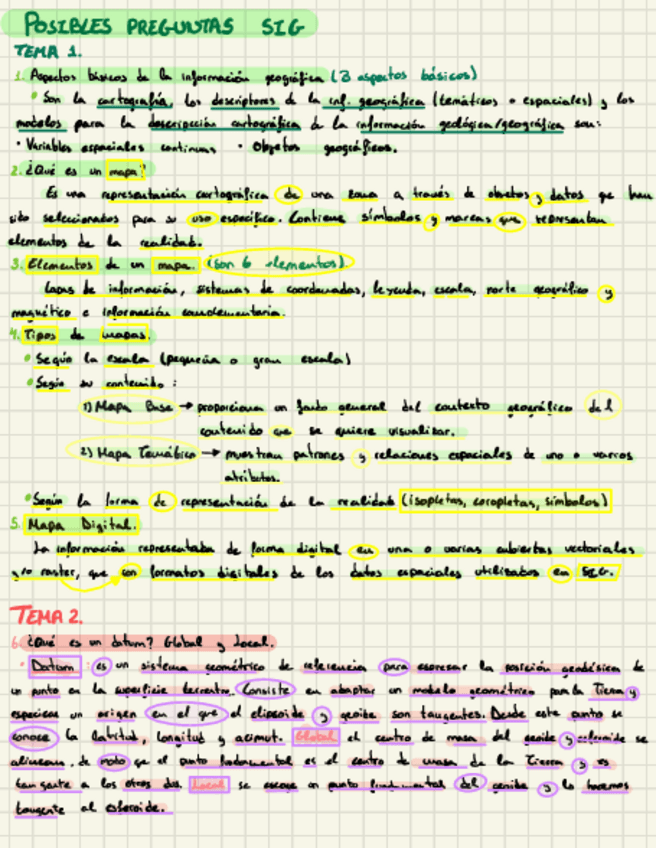 POSIBLES PREGUNTAS SIG
TEMA 1.
1. Aspectos básicos de la información geográfica (3 aspectos básicos)
• Son la cartografía, los descriptores de la inf. geográfica (temáticos o espaciales) y los
modelos para la descripción cartográfica de la información geológica/geográfica son:
• Variables espaciales continuas • Objetos geográficos.
2. ¿Qué es un mapa?
Es una representación cartográfica de una zona a través de objetos y datos que han
sido seleccionados para su uso específico. Contiene símbolos y marcas que representan
elementos de la realidad.
3. Elementos de un mapa. (son 6 elementos).
Capas de información, sistemas de coordenadas, leyenda, escala, norte geográfico y
magnético e información complementaria.
4. Tipos de mapas.
• Según la escala (pequeña o gran escala)
• Según su contenido:
1) Mapa Base → proporciona un fondo general del contexto geográfico del
contenido que se quiere visualizar.
2) Mapa Temático → muestran patrones y relaciones espaciales de uno o varios
atributos.
• Según la forma de representación de la realidad (isopletas, coropletas, símbolos)
5. Mapa Digital.
La información representada de forma digital en una o varias cubiertas vectoriales
y/o raster, que son formatos digitales de los datos espaciales utilizados en SIG.
TEMA 2.
6. ¿Qué es un datum? Global y Local.
• Datum: es un sistema geométrico de referencia para expresar la posición geodésica de
un punto en la superficie terrestre. Consiste en adaptar un modelo geométrico para la Tierra y
especificar un origen en el que el elipsoide y geoide son tangentes. Desde este punto se
conoce la latitud, longitud y acimut. Global el centro de masa del geoide y esferoide se
alinean, de modo que el punto fundamental es el centro de masa de la Tierra y es
tangente a los otros dos. Local se escoge un punto fundamental del geoide y lo hacemos
tangente al esferoide.